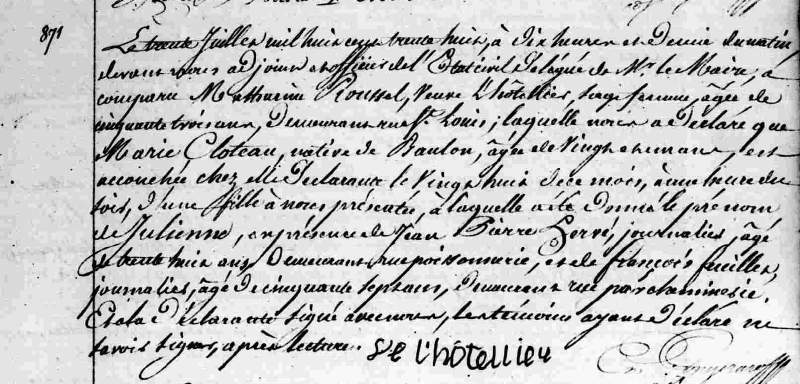 871
Le trente Juillet mil huit cent trente huit, à dix heures et demie du matin,
devant nous adjoint et officier de l'Etat civil délégué de Mr. le Maire, a
comparu Mathurine Roussel, Veuve L'hôtellier, sage femme, âgée de
cinquante trois ans, demeurant rue St. Louis; laquelle nous a déclaré que
Marie Cloteau, native de Baulon, âgée de vingt et un ans, est
accouchée chez elle déclarante le vingt huit de ce mois, à une heure du
soir, d'une fille à nous présentée, à laquelle a été donné le prénom
de Julienne, en présence de Jean Pierre Lervé, journalier, âgé
de trente huit ans, demeurant rue poissonnerie, et de françois feuillet,
journalier, âgé de cinquante sept ans, demeurant rue parcheminerie.
Et la déclarante signé avec nous, les témoins ayant déclaré ne
savoir signer, après lecture. Ve l'hôtellier